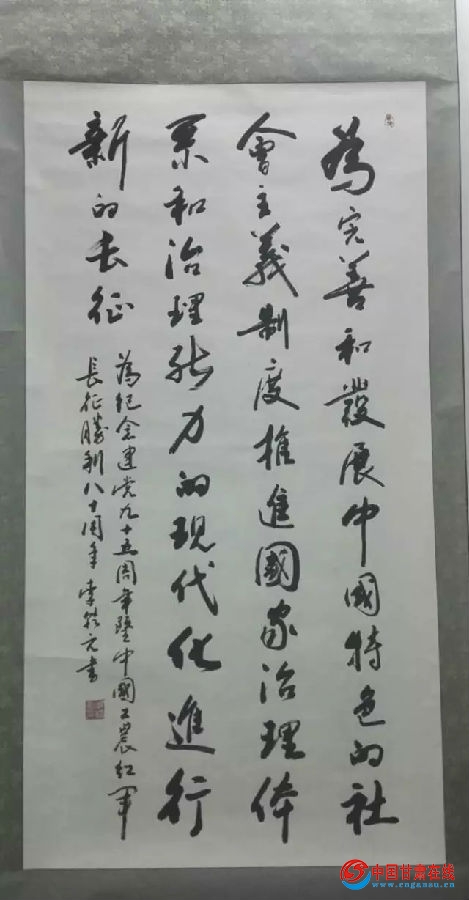 為完善和發展中國特色的社
會主義制度推進國家治理体
系和治理能力的現代化進行
新的長征
為纪念建党九十五周年暨中國工農红軍
長征勝利八十周年 李元書
中国甘肃在线
www.cngansu.cn